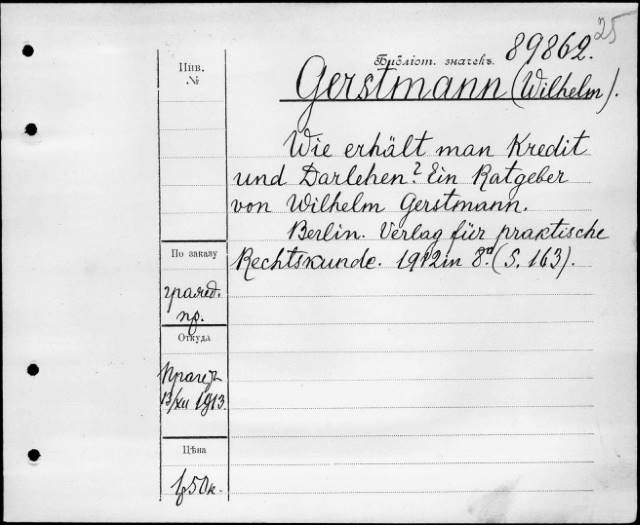 25
89862.
Библіот. значекъ.
Инв.
№
Gerstmann (Wilhelm).
Wie erhält man Kredit
und Darlehen? Ein Ratgeber
von Wilhelm Gerstmann.
Berlin. Verlag für praktische
Rechtskunde. 1912 in 8º. (S. 163).
По заказу
пр.
Откуда
13/XII 1913.
Цѣна
50к.